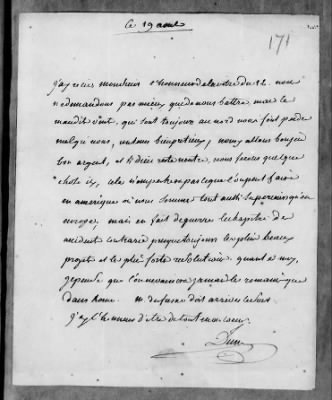 ce 19 aout
171
j'ay recu monsieur l'honneur de la votre du 12 nous
ne demandons pas mieux que de nous battre mais le
maudit vent, qui sont toujours au nord nous font perdre
malgré nous, un tems bien pretieux, nous allons
bon argent, et si dieu reste neutre, nous ferons quelque
chose icy, cela n'empeche on pas ce que l'on peut faire
en amerique ou nous sommes tout aussi superieurs qu'en
europe, mais en fait de guerre le chapitre des
accident contrarie presque toujours les plus beaux
projet et les plus forte resolutions quant a moy,
je pense que l'on ne vaincra jamais les romains que
dans Rome. m de fusée doit arriver
j'ay l'honneur d'etre de tout mon coeur